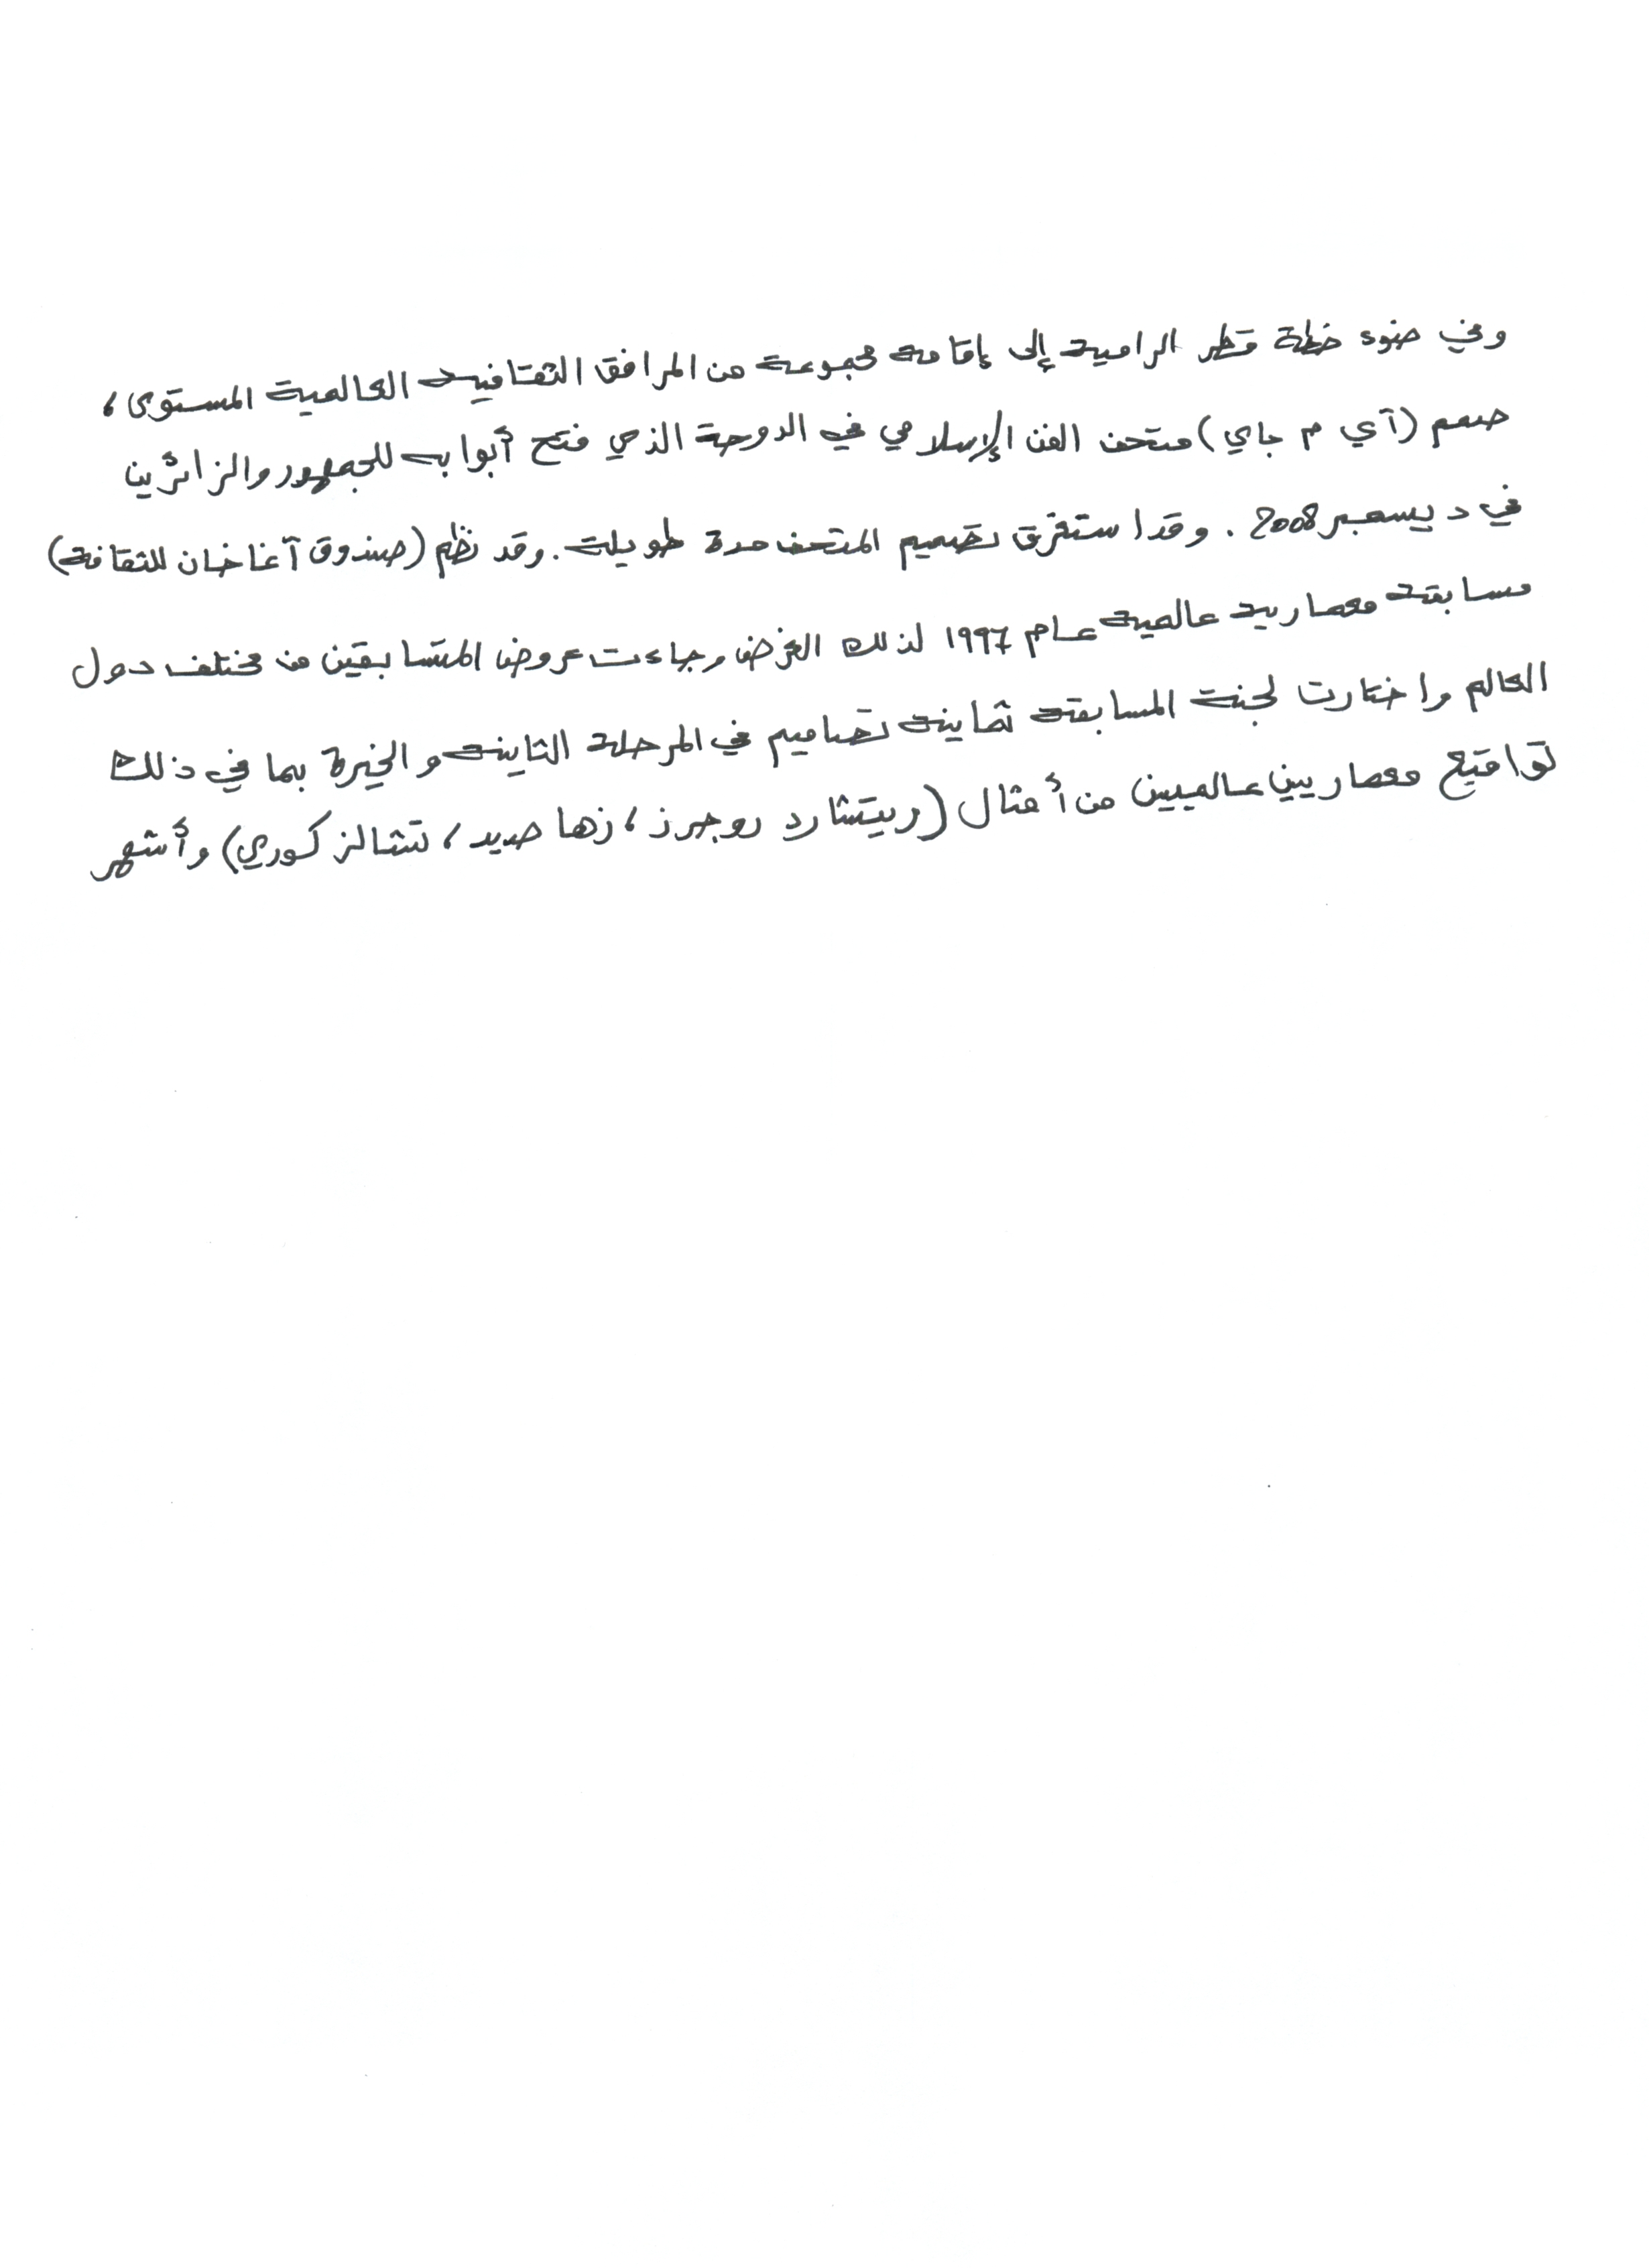 وفي ضوء خطة قطر الرامية إلى إقامة مجموعة من المرافق الثقافية العالمية المستوى،
صمم (آي م جاي) متحف الفن الإسلامي في الدوحة الذي فتح أبوابه للجمهور والزائرين
في ديسمبر 2008. وقد استغرق تصميم المتحف مدة طويلة. وقد نظم (صندوق آغاخان للثقافة)
مسابقة معمارية عالمية عام ١٩٩٧ لذلك الغرض وجاءت عروض المتسابقين من مختلف دول
العالم واختارت لجنة المسابقة ثمانية تصاميم في المرحلة الثانية والخيرة بما في ذلك
تواقيع معماريين عالميين من أمثال (ريتشارد روجرز، زها صديد، تشالز كوري) وأشهر